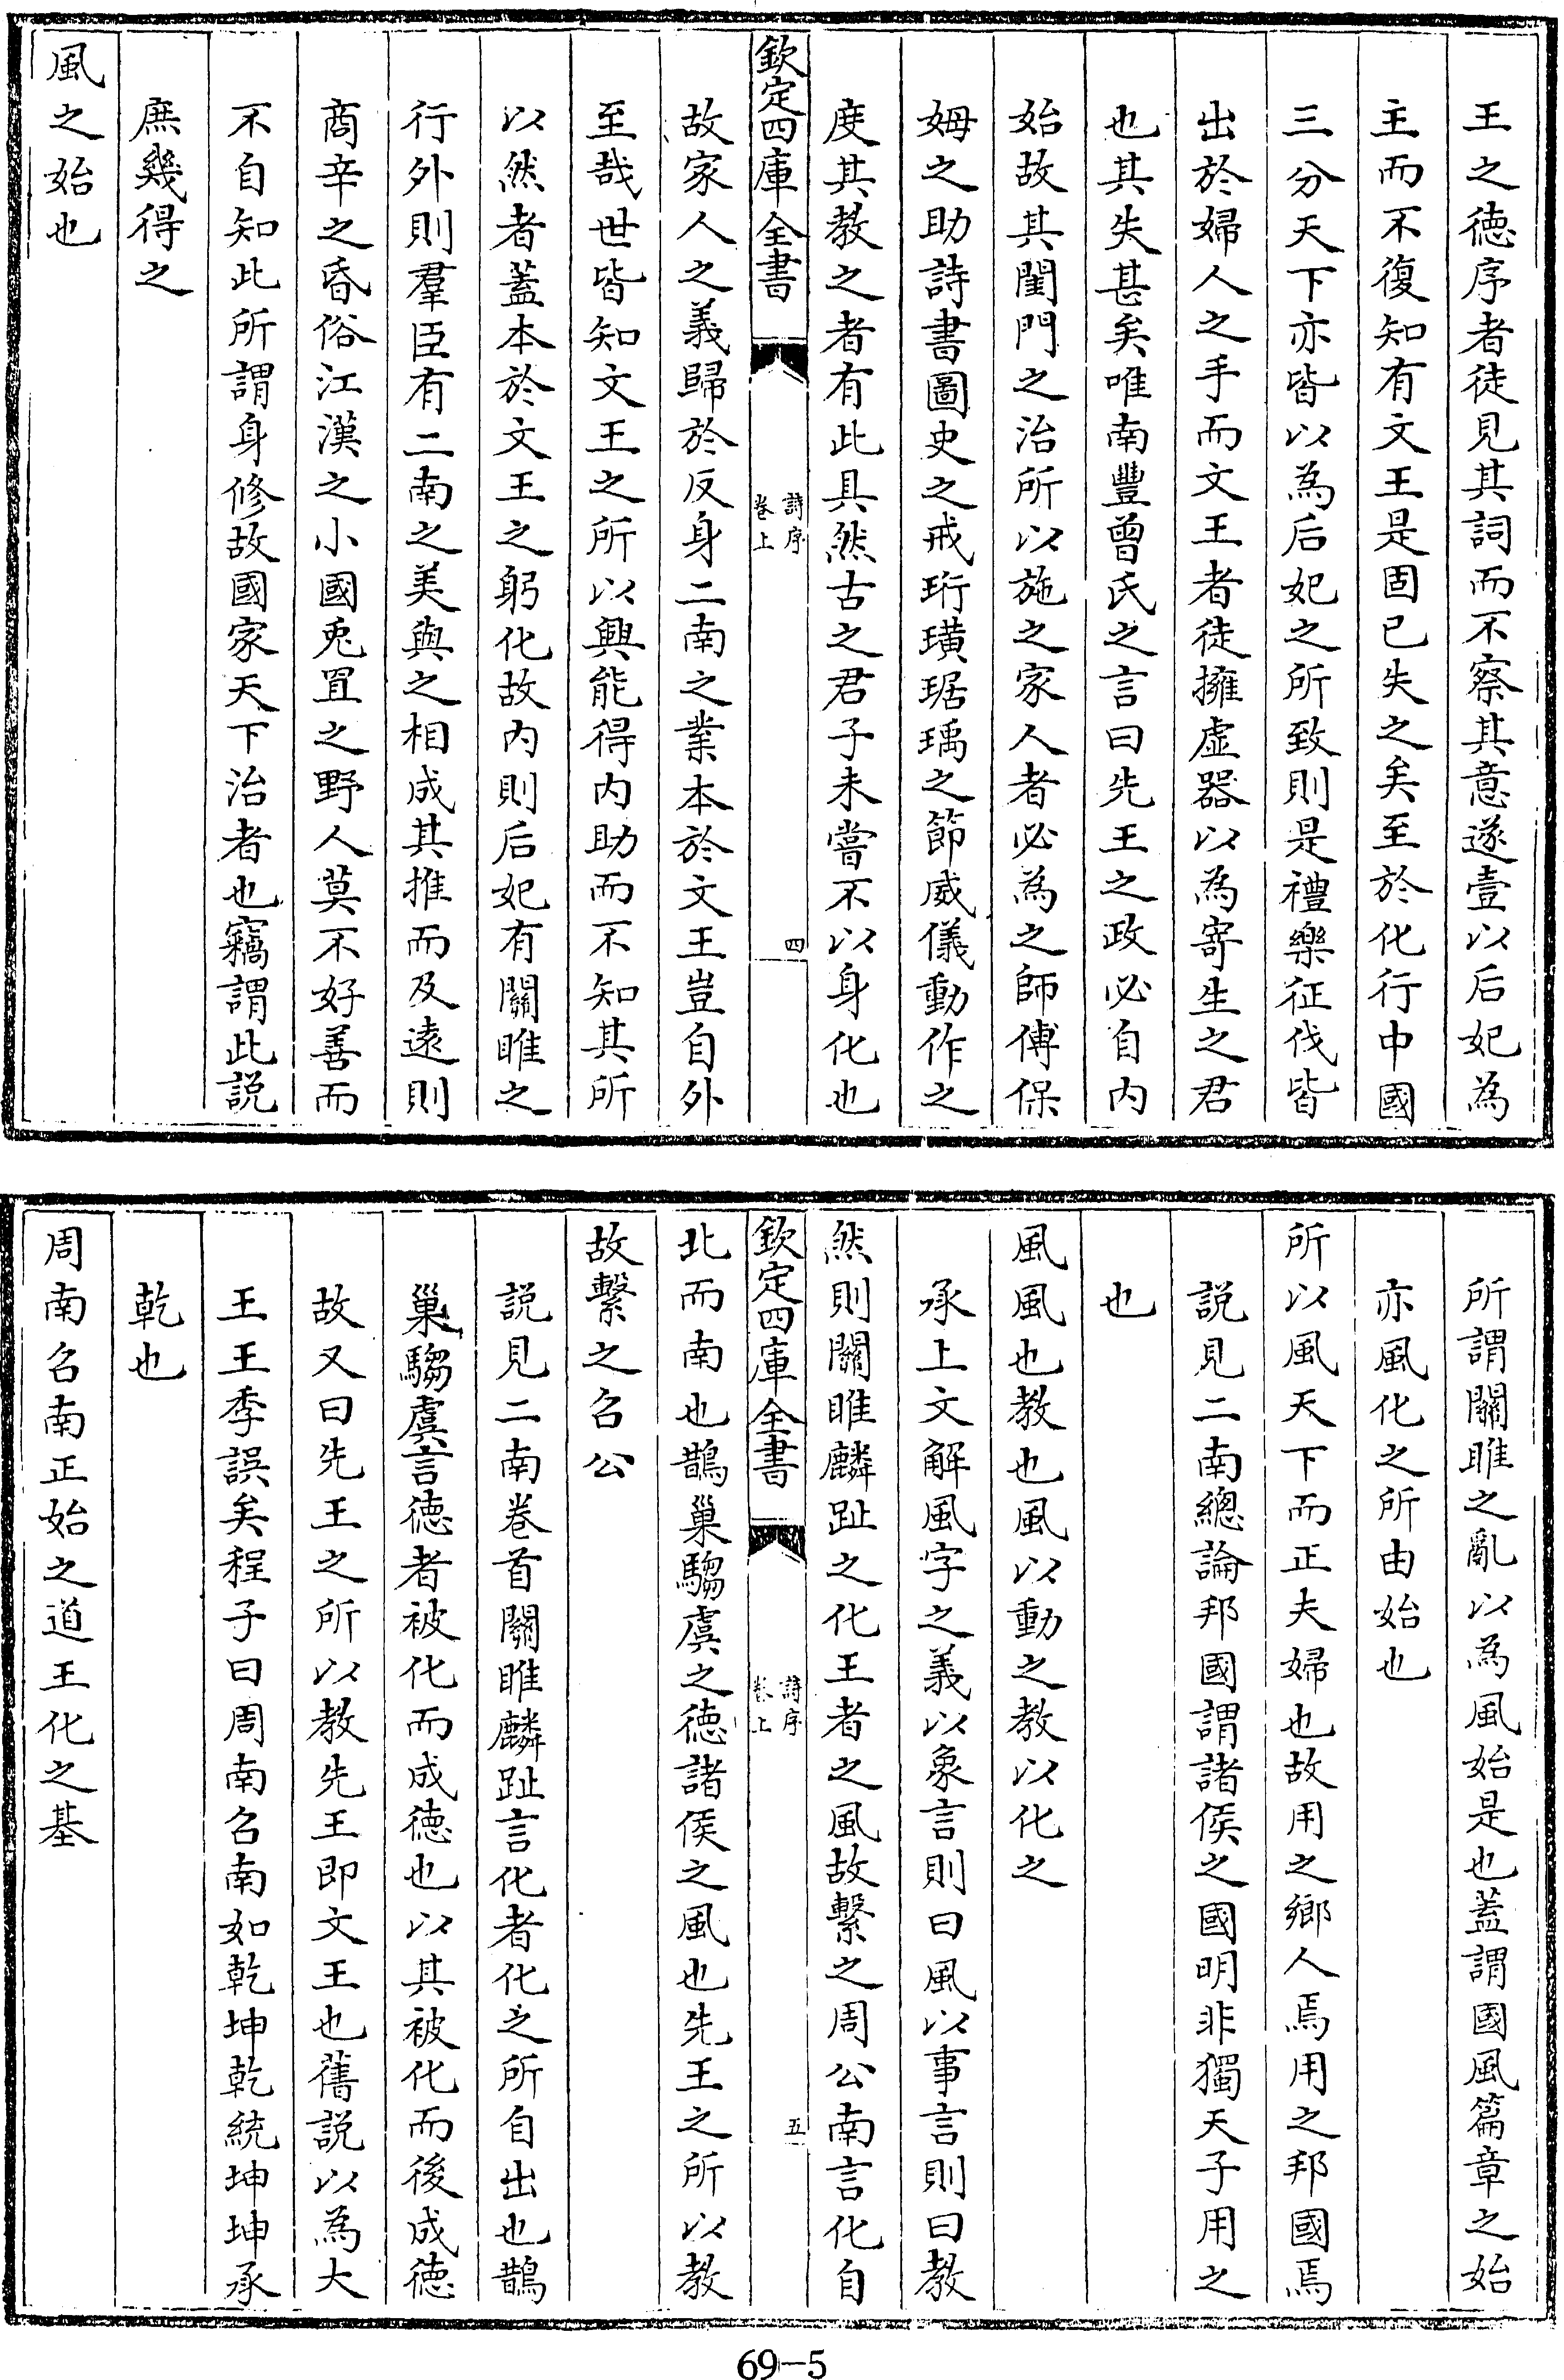 王之德序者徒見其詞而不察其意遂壹以后妃為
主而不復知有文王是固已失之矣至於化行中國
三分天下亦皆以為后妃之所致則是禮樂征伐皆
出於婦人之手而文王者徒擁虛器以為寄生之君
也其失甚矣唯南豐曾氏之言曰先王之政必自内
始故其閨門之治所以施之家人者必為之師傅保
姆之助詩書圖史之戒珩璜琚瑀之節威儀動作之
度其教之者有此具然古之君子未嘗不以身化也
欽定四庫全書
詩序
卷上
四
故家人之義歸於反身二南之業本於文王豈自外
至哉世皆知文王之所以興能得内助而不知其所
以然者蓋本於文王之躬化故内則后妃有關雎之
行外則羣臣有二南之美與之相成其推而及遠則
商辛之昏俗江漢之小國兎罝之野人莫不好善而
不自知此所謂身修故國家天下治者也竊謂此説
庶幾得之
風之始也
所謂關雎之亂以為風始是也蓋謂國風篇章之始
亦風化之所由始也
所以風天下而正夫婦也故用之鄉人焉用之邦國焉
説見二南總論邦國謂諸侯之國明非獨天子用之
也
風風也教也風以動之教以化之
承上文解風字之義以象言則曰風以事言則曰教
然則關雎麟趾之化王者之風故繫之周公南言化自
欽定四庫全書
詩序
卷上
五
北而南也鵲巢騶虞之德諸侯之風也先王之所以教
故繫之召公
説見二南卷首關雎麟趾言化者化之所自出也鵲
巢騶虞言德者被化而成德也以其被化而後成德
故又曰先王之所以教先王即文王也舊説以為大
王王季誤矣程子曰周南召南如乾坤乾統坤坤承
乾也
周南召南正始之道王化之基
69-5